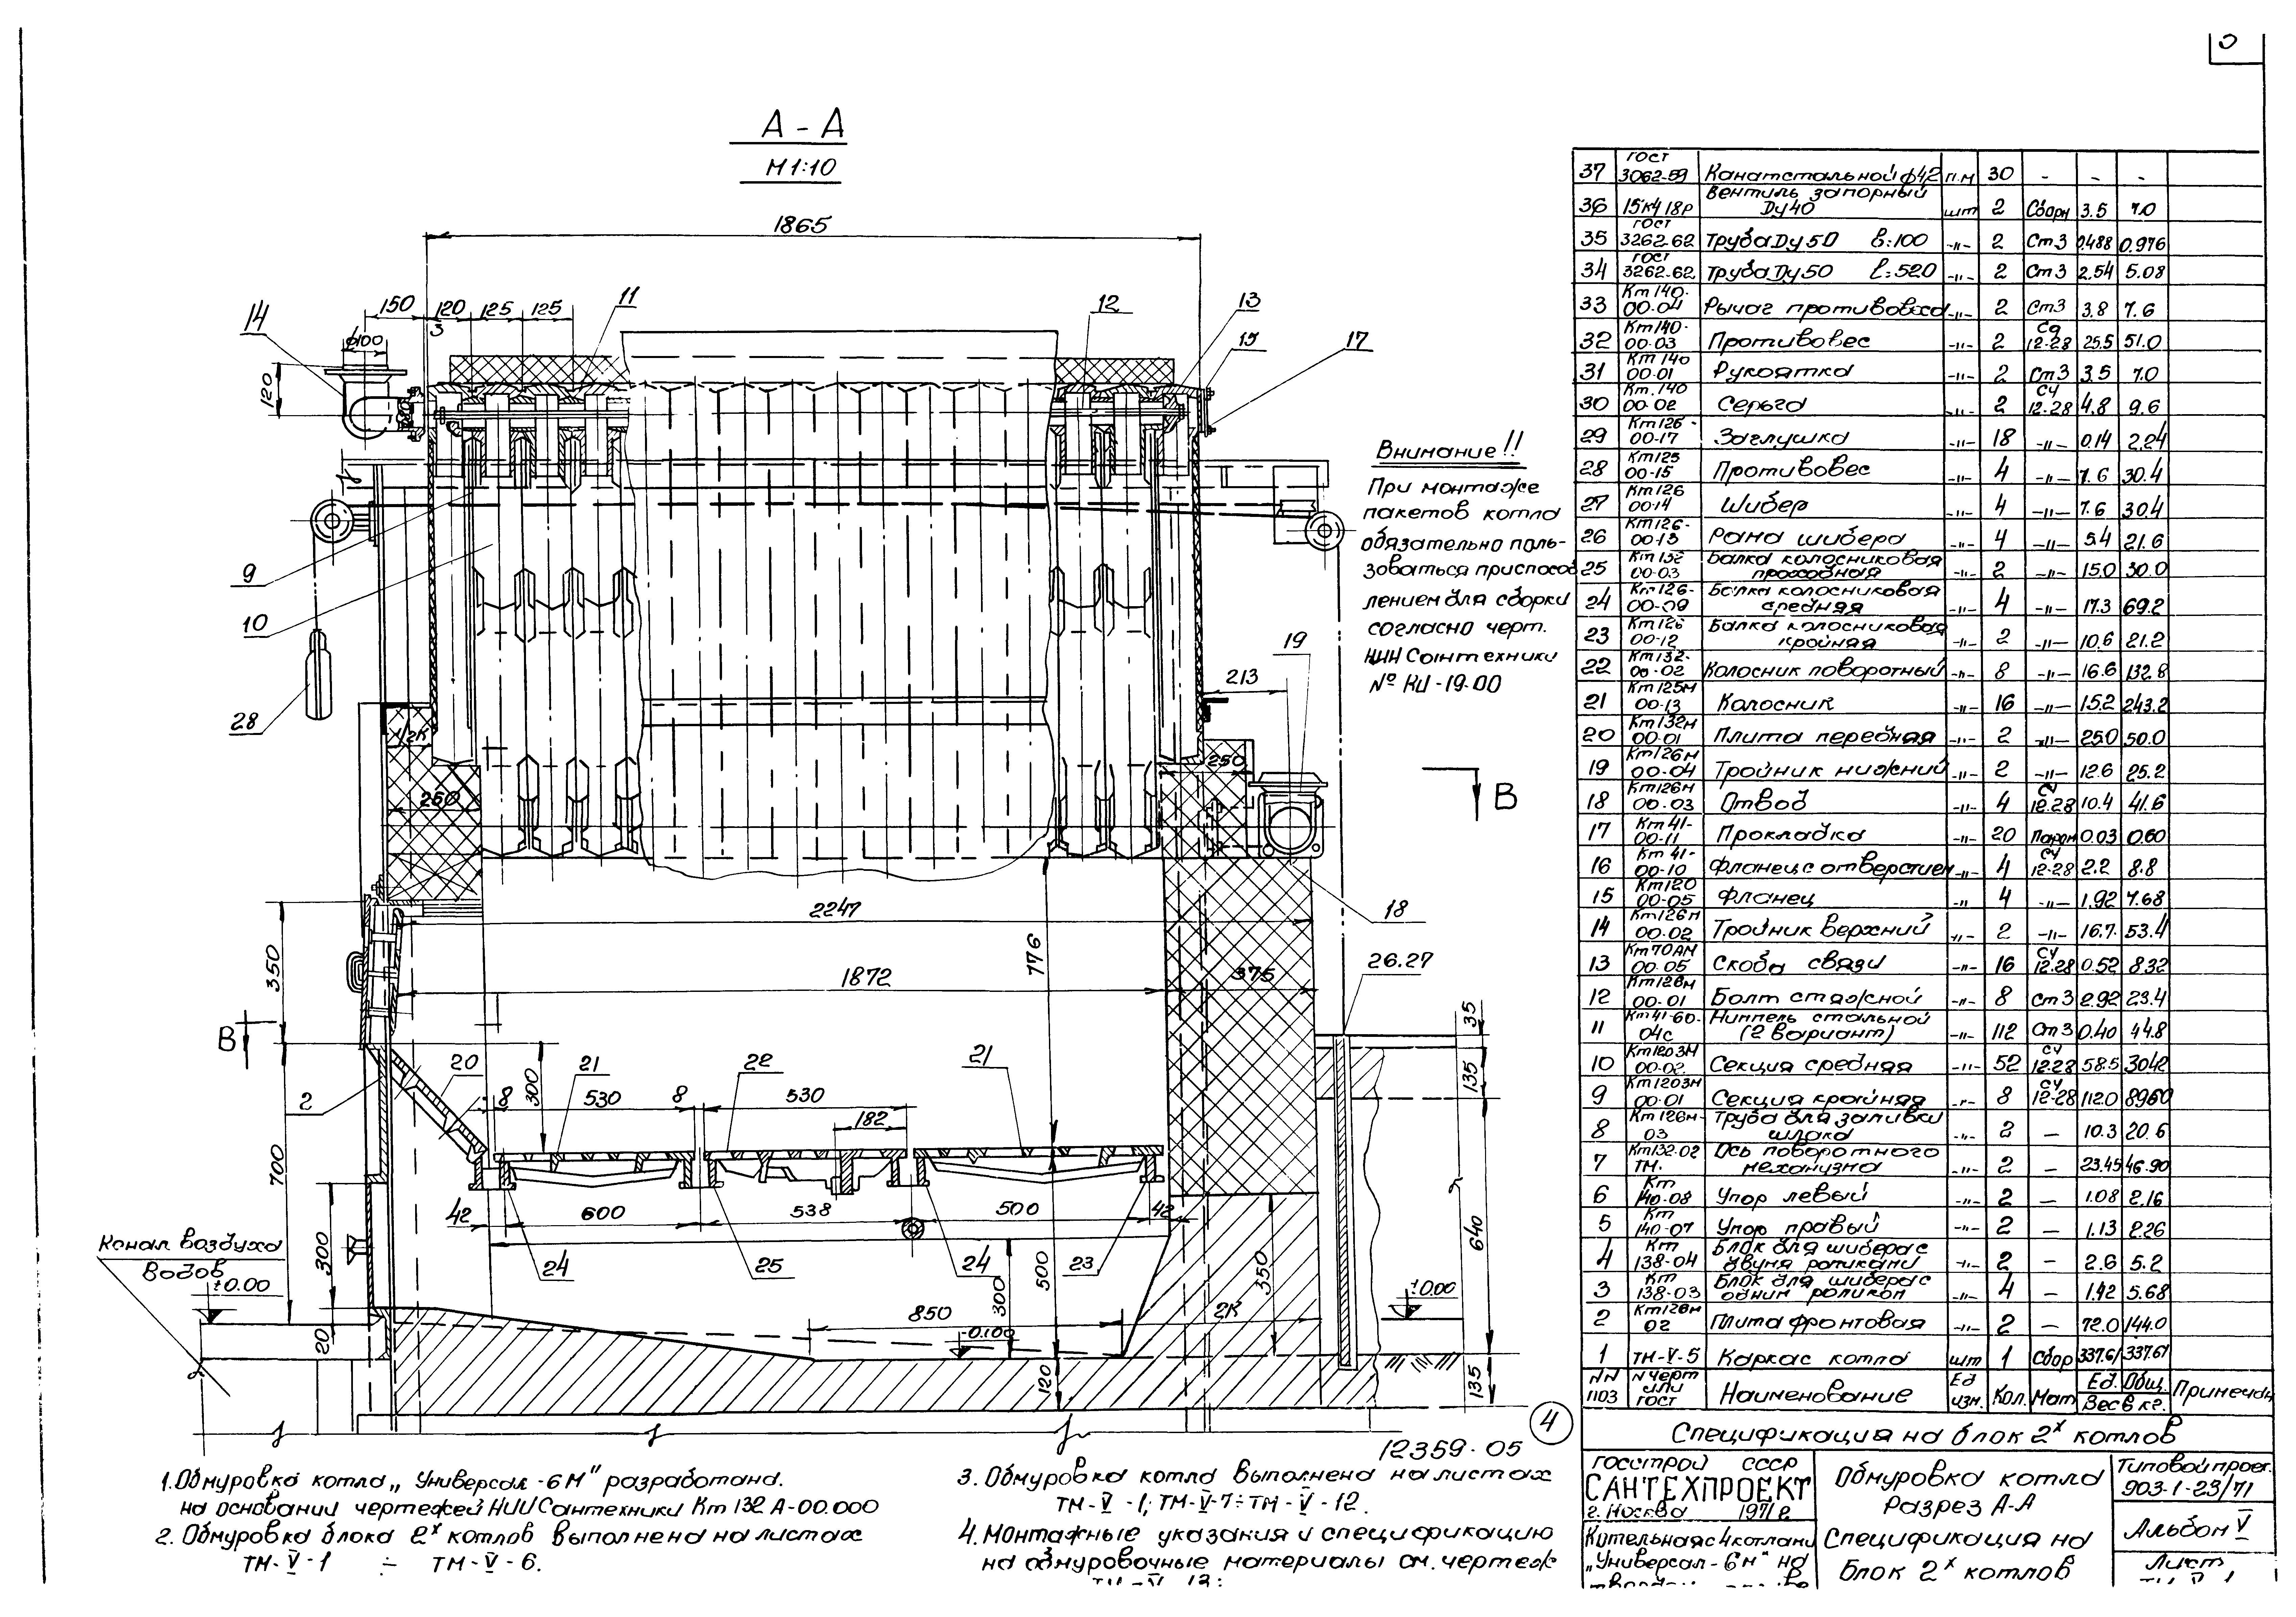 А - А
М 1:10
1865
150
120
125
125
11
12
13
14
15
17
3
ф100
120
9
10
28
2К
250
250
213
19
В
18
2247
1872
776
375
350
26.27
35
135
640
В
20
21
22
21
2
300
8
530
8
530
182
700
42
600
538
500
42
24
25
24
23
300
500
300
350
850
2К
-0.100
±0.00
20
120
135
Канал воздуха
водов
±0.00
Внимание!!
При монтаже
пакетов котла
обязательно поль-
зоваться приспособ
лением для сборки
согласно черт.
НИИ Сантехники
№ КИ-19.00
4
12359-05
1. Обмуровка котла „Универсал-6М" разработана.
на основании чертежей НИИ Сантехники Кт 132 А-00.000
2. Обмуровка блока 2х котлов выполнена на листах
ТМ-V-1 ÷ ТМ-V-6.
3. Обмуровка котла выполнена на листах
ТМ-V-1; ТМ-V-7÷ТМ-V-12.
4. Монтажные указания и спецификацию
на обмуровочные материалы см. чертеж
37 ГОСТ 3062-59 Канат стальной ф4,2 п.м 30 - - -
36 15кч 18р Вентиль запорный Ду40 шт 2 Сборн 3.5 7.0
35 ГОСТ 3262-62 Труба Ду 50 ℓ=100 -"- 2 Ст3 0.488 0.976
34 ГОСТ 3262-62 Труба Ду 50 ℓ=520 -"- 2 Ст3 2.54 5.08
33 Кт 140-00-04 Рычаг противовеса -"- 2 Ст3 3.8 7.6
32 Кт 140-00-03 Противовес -"- 2 Сч 12-28 25.5 51.0
31 Кт 140 00-01 Рукоятка -"- 2 Ст3 3.5 7.0
30 Кт. 140 00-02 Серьга -"- 2 СЧ 12-28 4.8 9.6
29 Кт 126-00-17 Заглушка -"- 18 -"- 0.14 2.24
28 Кт 125 00-15 Противовес -"- 4 -"- 7.6 30.4
27 Кт 126 00-14 Шибер -"- 4 -"- 7.6 30.4
26 Кт 126-00-13 Рама шибера -"- 4 -"- 5.4 21.6
25 Кт 132 00-03 Балка колосниковая проходная -"- 2 -"- 15.0 30.0
24 Кт 126-00-09 Балка колосниковая средняя -"- 4 -"- 17.3 69.2
23 Кт 126 00-12 Балка колосниковая крайняя -"- 2 -"- 10.6 21.2
22 Кт 132-00-02 Колосник поворотный -"- 8 -"- 16.6 132.8
21 Кт 125М 00-13 Колосник -"- 16 -"- 15.2 243.2
20 Кт 132М 00-01 Плита передняя -"- 2 -"- 25.0 50.0
19 Кт 126М 00-04 Тройник нижний -"- 2 -"- 12.6 25.2
18 Кт 126М 00-03 Отвод -"- 4 СЧ 12-28 10.4 41.6
17 Кт 41-00-11 Прокладка -"- 20 Парон 0.03 0.60
16 Кт 41-00-10 Фланец с отверстием -"- 4 СЧ 12-28 2.2 8.8
15 Кт 120 00-05 Фланец -"- 4 -"- 1.92 7.68
14 Кт 126М 00-02 Тройник верхний -"- 2 -"- 16.7 53.4
13 Кт 70АМ 00-05 Скоба связи -"- 16 СЧ 12-28 0.52 8.32
12 Кт 126М 00-01 Болт стяжной -"- 8 Ст 3 2.92 23.4
11 Кт 41-60-04с Ниппель стальной (2 вариант) -"- 112 Ст 3 0.40 44.8
10 Кт 120ЗМ 00-02 Секция средняя -"- 52 СЧ 12-28 58.5 3042
9 Кт 120ЗМ 00-01 Секция крайняя -"- 8 СЧ 12-28 112.0 896.0
8 Кт 126М-03 Труба для заливки шлака -"- 2 - 10.3 20.6
7 Кт 132-02 ТМ. Ось поворотного механизма -"- 2 - 23.45 46.90
6 Кт 140-08 Упор левый -"- 2 - 1.08 2.16
5 Кт 140-07 Упор правый -"- 2 - 1.13 2.26
4 Кт 138-04 Блок для шибера с двумя роликами -"- 2 - 2.6 5.2
3 Кт 138-03 Блок для шибера с одним роликом -"- 4 - 1.42 5.68
2 Кт 126М 02 Плита фронтовая -"- 2 - 72.0 144.0
1 ТМ-V-5 Каркас котла шт 1 Сбор 337.61 337.61
NN поз N черт или ГОСТ Наименование Ед изм. Кол. Мат Ед. Общ. Вес в кг. Примечан
Спецификация на блок 2х котлов
ГОССТРОЙ СССР
САНТЕХПРОЕКТ
г. Москва 1971г
Котельная с 4 котлами
„Универсал-6М" на
Обмуровка котла
Разрез А-А
Спецификация на
блок 2х котлов
Типовой проек.
903-1-23/71
Альбом V
Лист